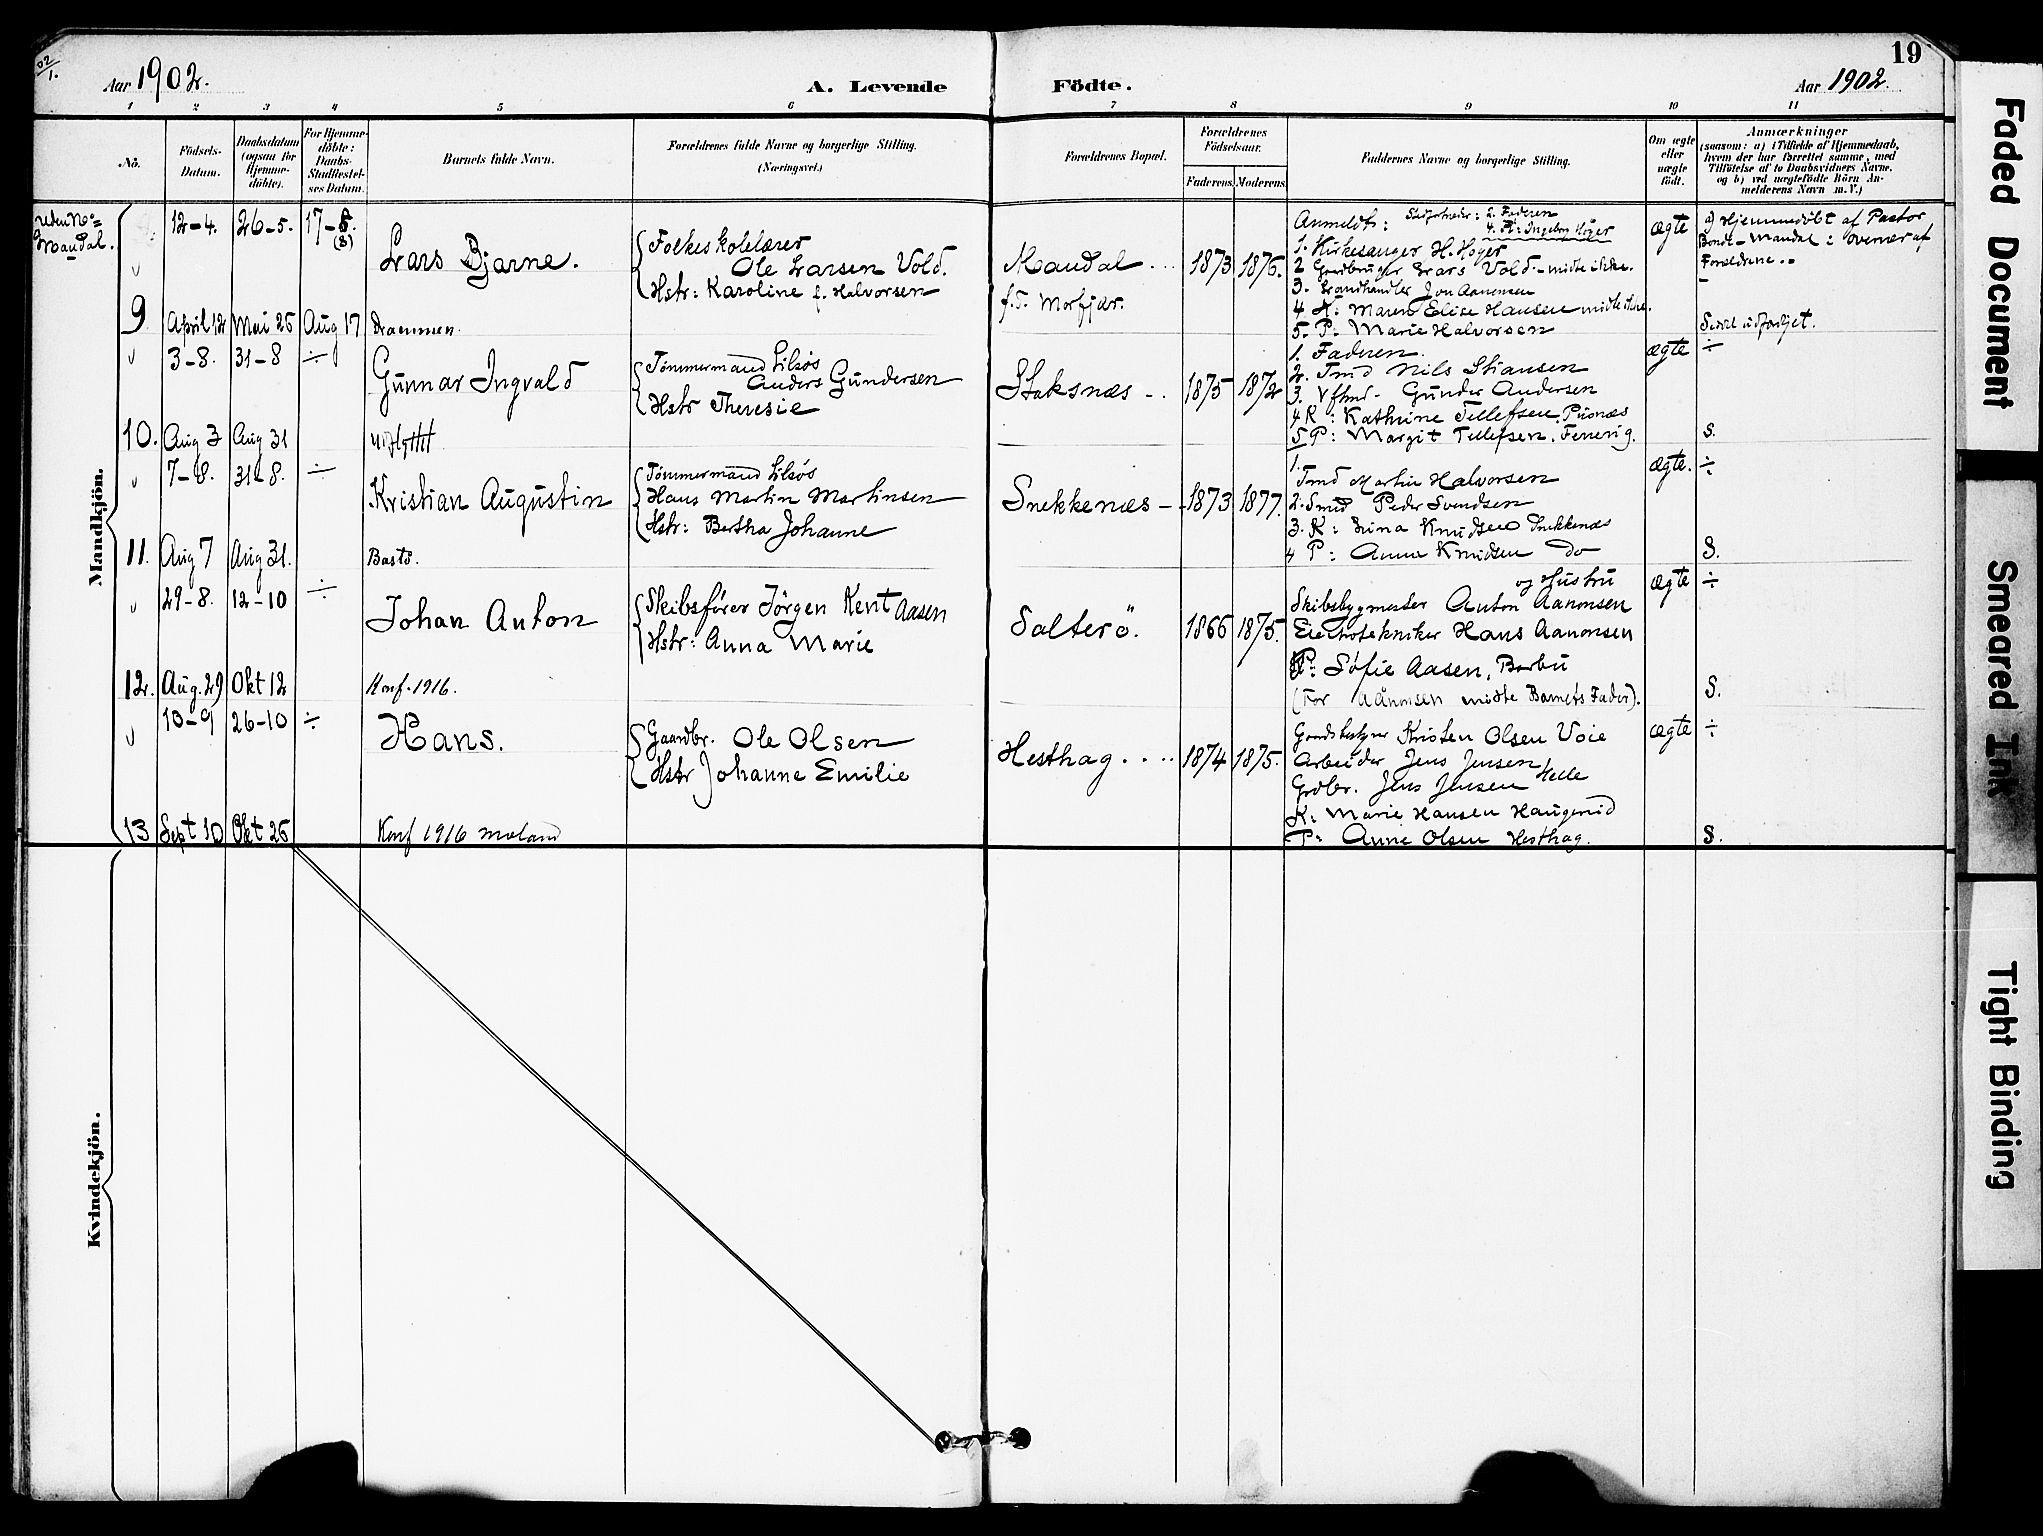 02/1.
Aar 1902.
A. Levende
Födte.
Aar 1902.
19
1 2 3 4 5 6 7 8 9 10 11
No.
Födsels-
Datum.
Daabsdatum
(ogsaa for
Hjemme-
döbte).
For Hjemme-
döbte:
Daabs-
Stadfæstel-
ses Datum.
Barnets fulde Navn.
Forældrenes fulde Navne og borgerlige Stilling.
(Næringsvei.)
Forældrenes Bopæl.
Forældrenes
Födselsaar.
Faderens. Moderens.
Faddernes Navne og borgerlige Stilling.
Om ægte
eller
uægte
födt.
Anmærkninger
(saasom: a) i Tilfælde af Hjemmedaab,
hvem der har forrettet samme, med
Tilföielse af to Daabsvidners Navne,
og b) ved uægtefödte Börn An-
melderens Navn m. V.)
Mandkjön.
Uden No =
Mandal.
12-4. 26-5. 17-8.
(8)
Lars Bjarne.
Folkeskolelærer
Ole Larsen Vold.
Hstr: Karoline f. Halvorsen
Mandal ...
f. T. Morfjær.
1873 1876.
Anmeldt: 2. Faderen
4. Fr: Ingeborg Höyer
1. Kirkesanger H. Höyer
2 Gaardbruger Lars Vold - mödte ikke.
3. Jon Aanonsen
4 K: Maren Elise Hansen mödte ikke.
5. P: Marie Halvorsen
ægte
a) Hjemmedöbt af Pastor
Bonde - Mandal: overvær af
Forældrene..
9 April 12 Mai 26 Aug 17 Drammen.
Seddel udfærdiget.
3-8. 31-8 ÷
Gunnar Ingvald
Tömmermand Lilsös
Anders Gundersen
Hstr Theresie
Staksnæs - .
1875 1872
1. Faderen.
2. Tmd Nils Stiansen
3. Gunder Andersen
4 K: Kathrine Tellefsen, Pusnæs
5 P: Margit Tellefsen, Fenevig.
ægte ÷
10. Aug 3 Aug 31 Udflyttet
S.
7-8. 31-8. ÷
Kristian Augustin
Tömmermand Lilsös
Hans Martin Martinsen
Hstr: Bertha Johanne
Snekkenæs -
1873 1877.
1. Tmd Martin Halvorsen
2. Smed Peder Svendsen
3. K: Lina Knudsen Snekkenæs
4 P: Anna Knudsen do
ægte. ÷
11. Aug 7 Aug 31. Bastö.
S.
29-8. 12-10 ÷
Johan Anton
Skibsförer Jörgen Kent Aasen
Hstr: Anna Marie
Salterö.
1866 1875.
og Hustru
Skibsbygmester Anton Aanonsen
Electrotekniker Hans Aanonsen
P: Söfie Aasen, Barbu
(For Aanonsen mödte Barnets Fader).
ægte ÷
12. Aug. 29 Okt 12 Konf. 1916.
S.
10-9 26-10 ÷
Hans.
Gaardbr. Ole Olsen
Hstr Johanne Emilie
Hesthag ....
1874 1875.
Gaardbestyrer Kristen Olsen Voie
Arbeider Jens Jensen
Grdbr. Jens Jensen Helle
K: Marie Hansen Haugerud
P: Anne Olsen Hesthag.
ægte ÷
13 Sept 10 Okt 26 Konf 1916 Moland
S.
Kvindekjön.
Faded Document
Smeared Ink
Tight Binding